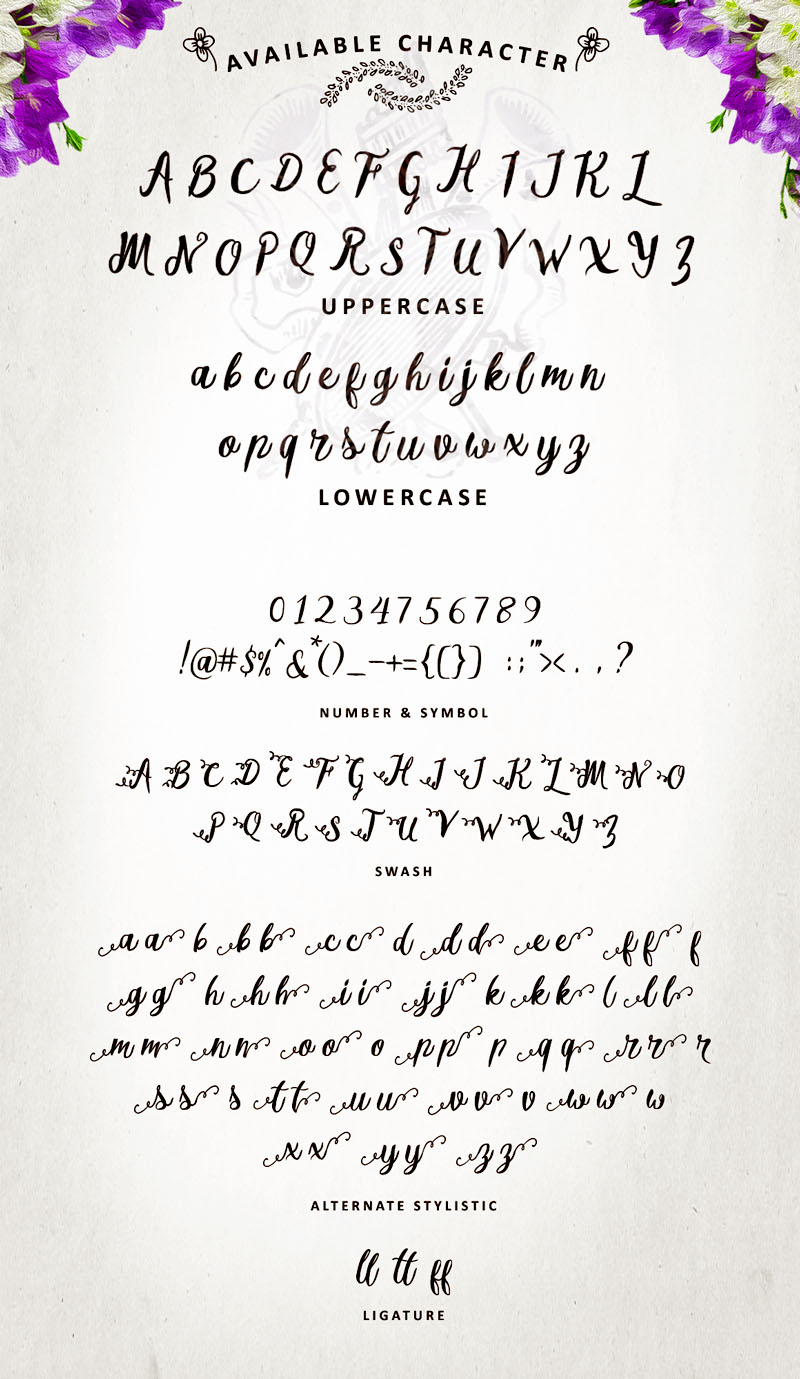 AVAILABLE CHARACTER
A B C D E F G H I J K L
M N O P Q R S T U V W X Y Z
UPPERCASE
a b c d e f g h i j k l m n
o p q r s t u v w x y z
LOWERCASE
0 1 2 3 4 7 5 6 7 8 9
! @ # $ % ^ & * ( ) _ - + = { [ } ] : ; " ' > < . , ?
NUMBER & SYMBOL
A B C D E F G H I J K L M N O
P Q R S T U V W X Y Z
SWASH
a a b b b c c d d d e e f f f
g g h h h i i j j k k k l l l
m m n n o o o p p p q q r r r
s s s t t u u v v v w w w
x x y y z z
ALTERNATE STYLISTIC
ll tt ff
LIGATURE